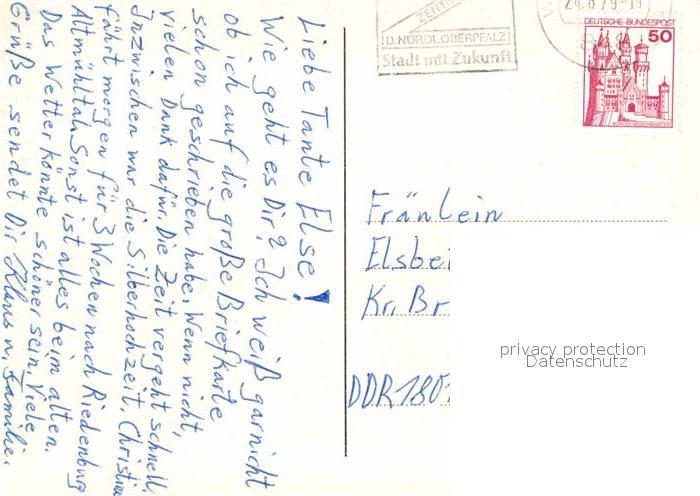 Liebe Tante Else!
Wie geht es Dir? Ich weiß garnicht
ob ich auf die große Briefkarte
schon geschrieben habe. Wenn nicht,
vielen Dank dafür. Die Zeit vergeht schnell.
Inzwischen war die Silberhochzeit. Christian
fährt morgen für 3 Wochen nach Riedenburg
Altmühltal. Sonst ist alles beim alten.
Das Wetter könnte schöner sein. Viele
Grüße sendet Dir Klaus u. Familie.
D. NORDLOBERPFALZ
Stadt mit Zukunft
24.8.79-19
DEUTSCHE BUNDESPOST
50
Fräulein
Elsbe
Kr. Br
DDR 180
privacy protection
Datenschutz